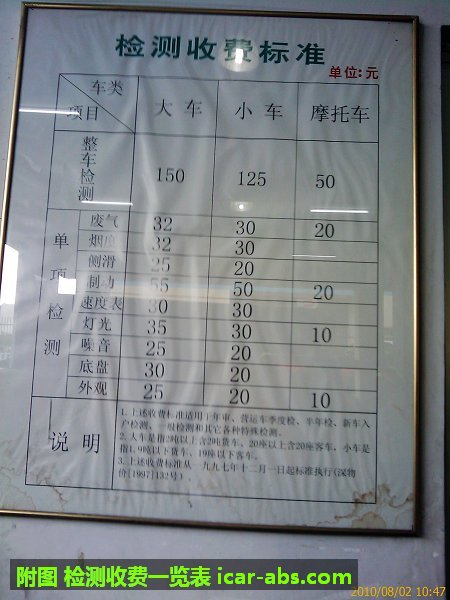 检测收费标准
单位:元
车类
项目 大车 小车 摩托车
整车检测 150 125 50
单项检测
废气 32 30 20
烟度 32 30
侧滑 25 20
制动 55 50 20
速度表 30 30
灯光 35 30 10
噪音 25 20
底盘 30 20
外观 25 20 10
说明
1.上述收费标准适用于年审、营运车季度检、半年检、新车入
户检测、一级检测和其它各种特殊检测。
2.大车是指2吨以上含2吨货车、20座以上含20座客车,小车是
指1.9吨以下货车、19座以下客车。
3.上述收费标准从一九九七年十二月一日起标准执行(深物
价[1997]132号)。
附图 检测收费一览表 icar-abs.com
2010/08/02 10:47